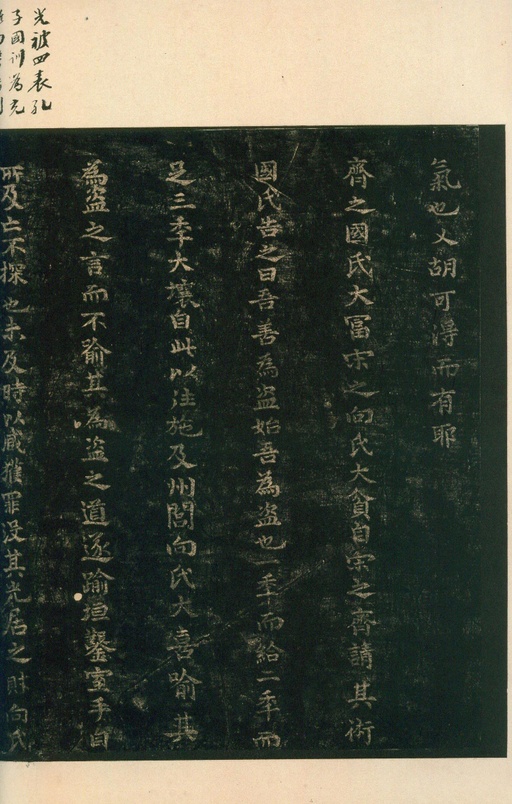 氣也乂胡可淂而有耶
齊之國氏大冨宋之向氏大貧自宋之齊請其術
國氏告之曰吾善為盜始吾為盜也一季而給二季而
足三季大壤自此以往施及州閭向氏大喜喻其
為盜之言而不喻其為盜之道遂踰垣鑿室手自
所及亡不探也未及時以臧獲罪没其先居之財向氏
光被四表孔
子國訓為充